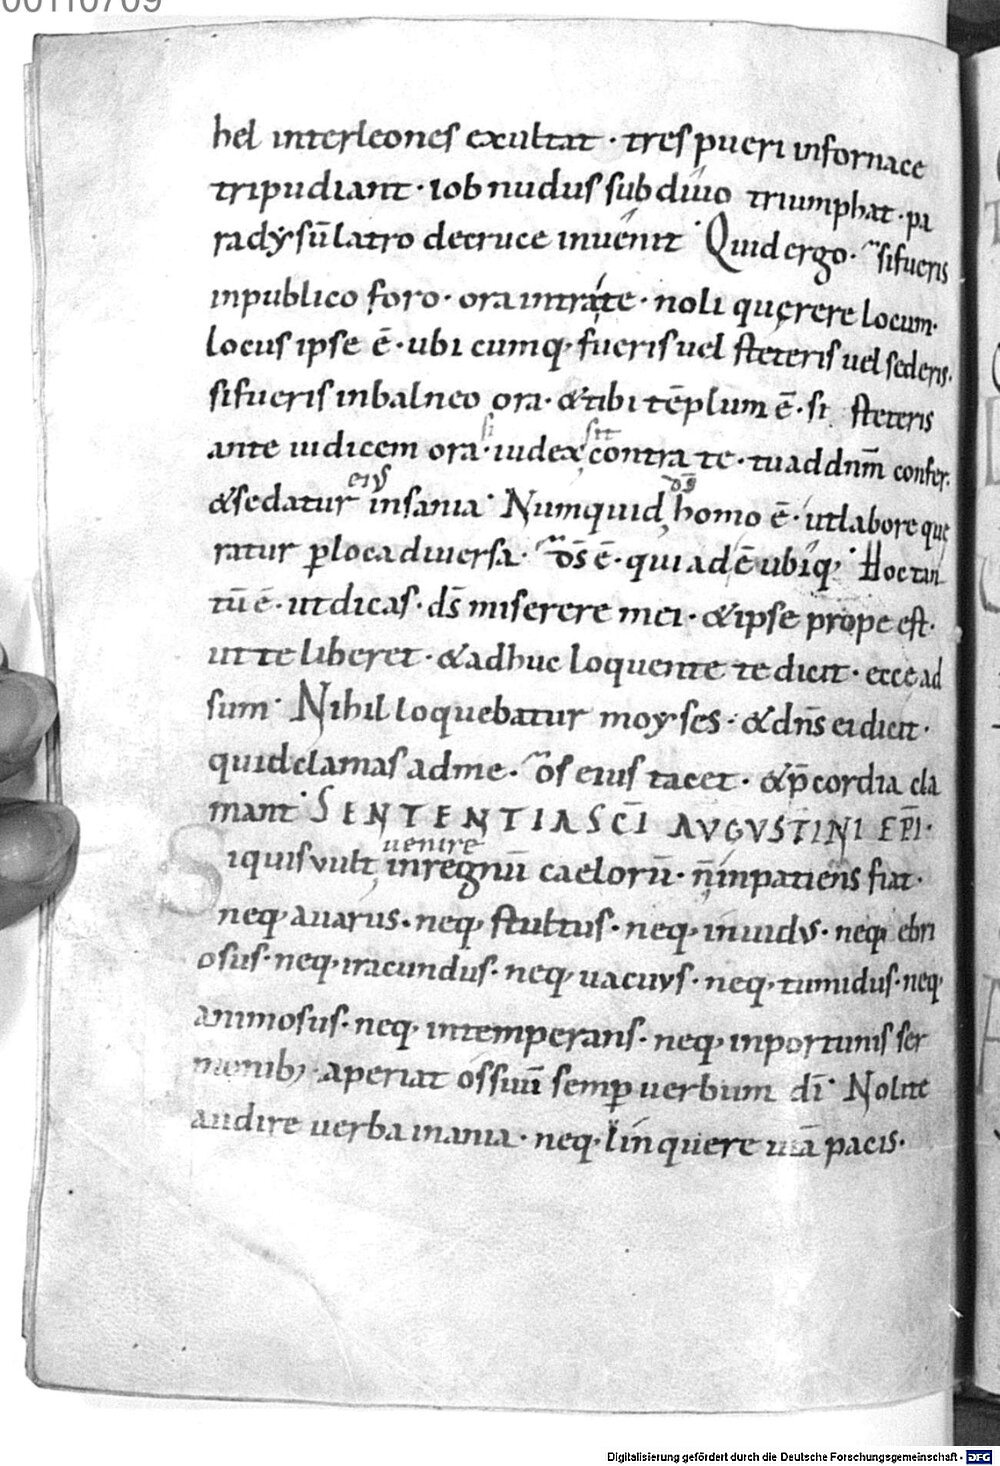 00110709
hel inter leones exultat · tres pueri infornace
tripudiant · iob nudus sub diuo triumphat · pa
radysū latro decruce inuenit · Quid ergo · si fueris
inpublico foro · ora intra te · noli quęrere locum ·
locus ipse ē · ubi cumq; fueris uel steteris uel sederis ·
sifueris inbalneo ora · & tibi tēplum ē · si steteris
si sit
ante iudicem ora · iudex contra te · tu ad dnm̄ confer ·
eius ds̄
& sedatur insania · Numquid homo ē · ut labore quę
ratur ꝑ loca diuersa · ds̄ ē · qui adē ubiq; · Hoc tan
tū ē · ut dicas · ds̄ miserere mei · & ipse prope est ·
ut te liberet · & adhuc loquente te dicit · ecce ad
sum · Nihil loquebatur moyses · & dns̄ ei dicit ·
quid clamas ad me · os eius tacet · & p̄cordia cla
mant · SENTENTIA SCĪ AUGUSTINI EPĪ ·
uenire
Si quis vult in regnū caelorū · n̄ inpatiens fiat ·
neq; auarus · neq; stultus · neq; inuidus · neq; ebri
osus · neq; iracundus · neq; uacuus · neq; tumidus · neq;
animosus · neq; intemperans · neq; inportunis ser
monib; · aperiat os suū semꝑ uerbum dī · Nolite
audire uerba inania · neq; linquere uiā pacis ·
Digitalisierung gefördert durch die Deutsche Forschungsgemeinschaft · DFG